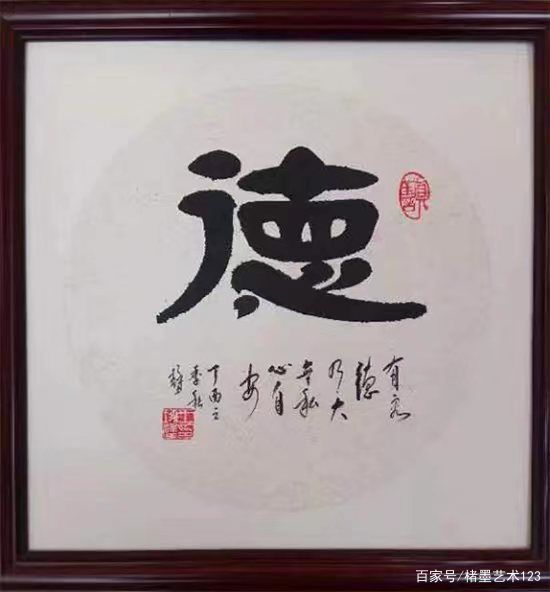 德
有容
德
乃大
无私
心自
安
丁酉之
季秋
百家号/楮墨艺术123